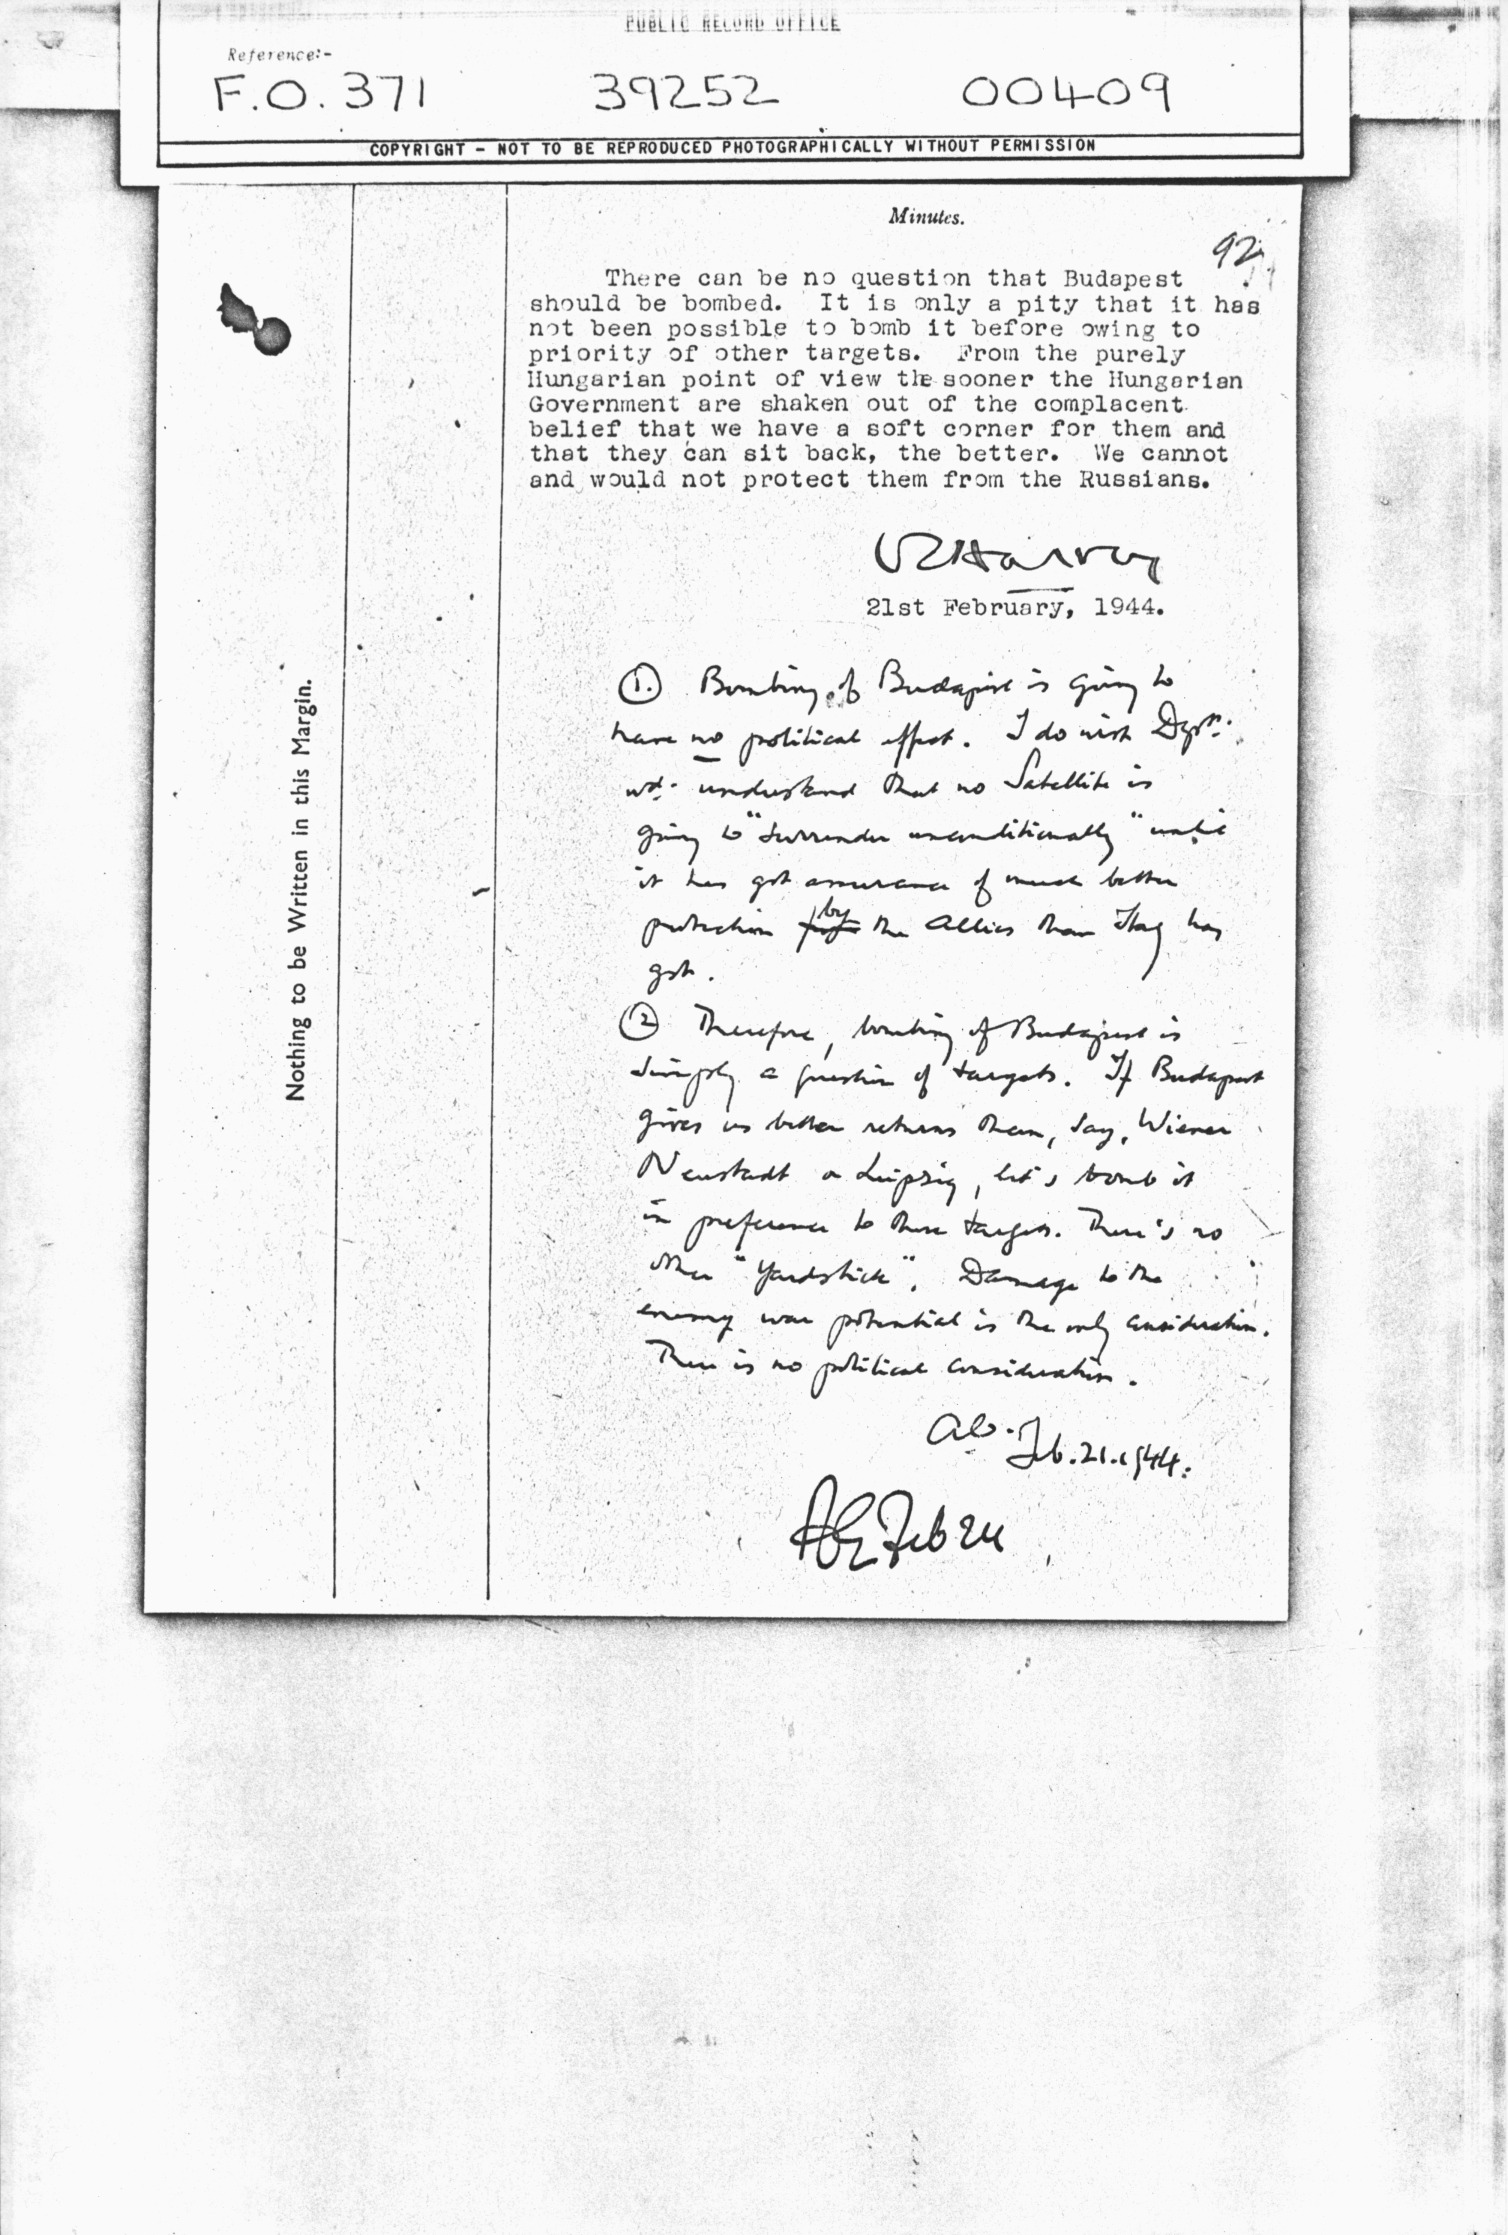 PUBLIC RECORD OFFICE
Reference:-
F.O. 371 39252 00409
COPYRIGHT - NOT TO BE REPRODUCED PHOTOGRAPHICALLY WITHOUT PERMISSION
Minutes.
92
There can be no question that Budapest
should be bombed. It is only a pity that it has
not been possible to bomb it before owing to
priority of other targets. From the purely
Hungarian point of view the sooner the Hungarian
Government are shaken out of the complacent
belief that we have a soft corner for them and
that they can sit back, the better. We cannot
and would not protect them from the Russians.
Harvey
21st February, 1944.
① Bombing of Budapest is going to
have no political effect. I do wish Dept.
wd. understand that no Satellite is
going to "surrender unconditionally" until
it has got assurance of much better
protection by the Allies than Italy has
got.
② Therefore, bombing of Budapest is
simply a question of targets. If Budapest
gives us better returns than, say, Wiener
Neustadt or Leipzig, let's bomb it
in preference to those targets. There's no
other "yardstick". Damage to the
enemy war potential is the only consideration.
There is no political consideration.
Feb. 21. 1944.
Feb 24
Nothing to be Written in this Margin.